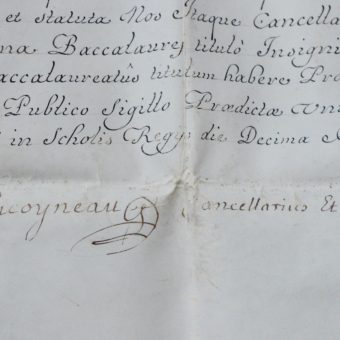 et Statuta Nos Itaque Cancella
na Baccalaurej titulô Insigni
accalaureatûs titulum habere Pro
Publico Sigillo Prædictæ Uni
in Scholis Regijs die Decima
icoyneau Cancellarius Et